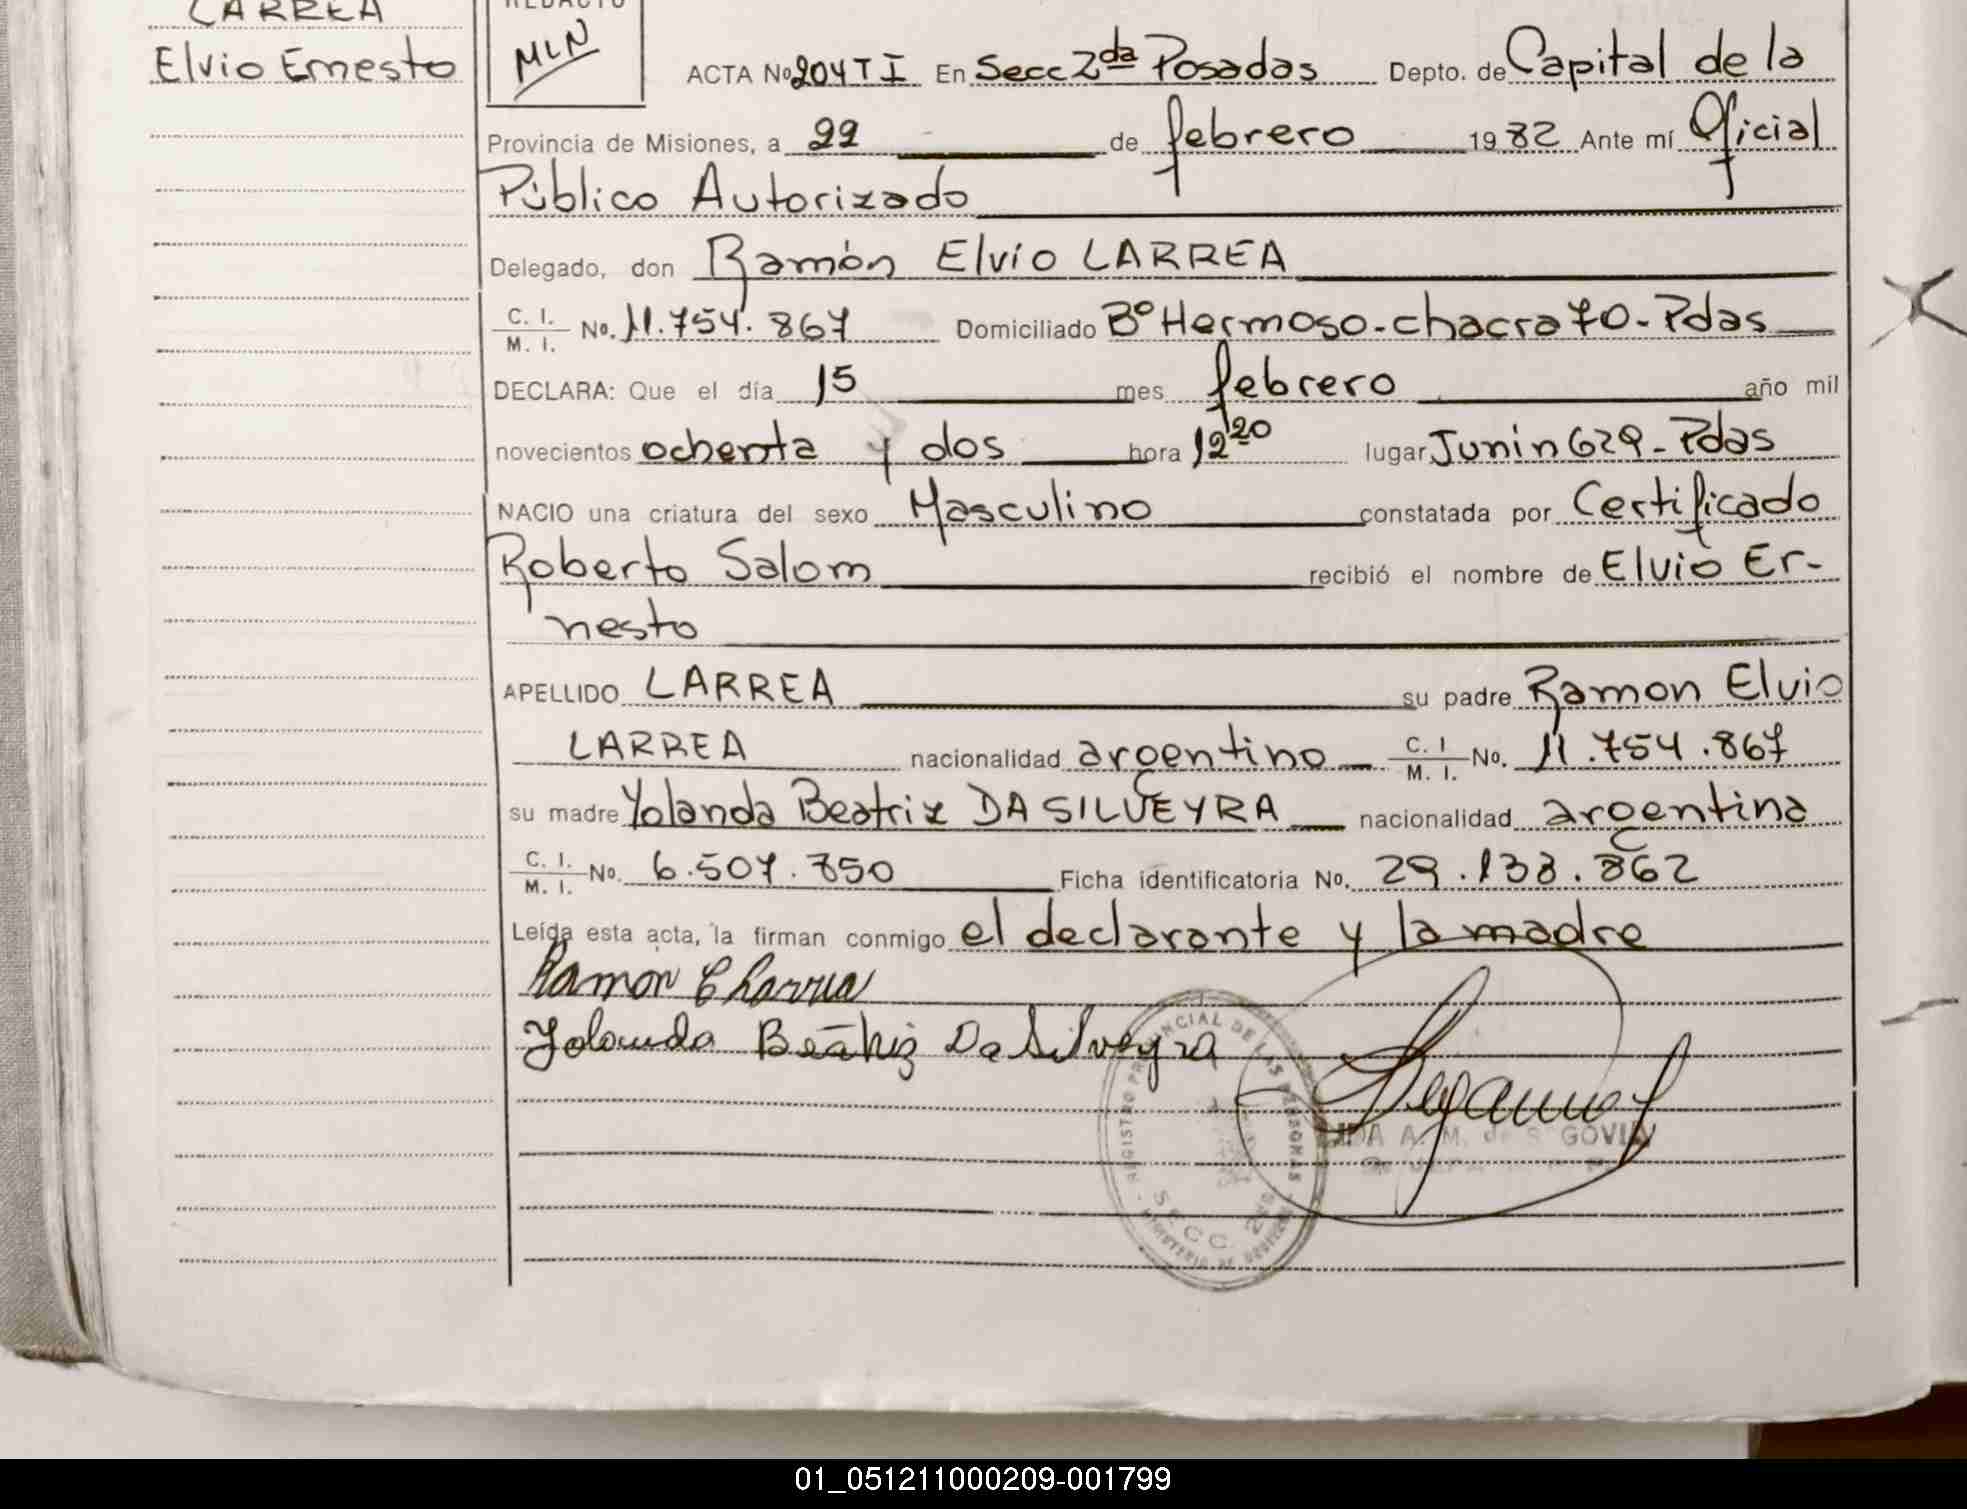 LARREA
Elvio Ernesto
REDACTO
MLN
ACTA No 204 T I En Secc 2da Posadas Depto. de Capital de la
Provincia de Misiones, a 22 de febrero 1982 Ante mí Oficial
Público Autorizado
Delegado, don Ramón Elvio LARREA
C. I. / M. I. No. 11.754.867 Domiciliado Bº Hermoso-chacra 70-Pdas
DECLARA: Que el día 15 mes febrero año mil
novecientos ochenta y dos hora 12 20 lugar Junin 629-Pdas
NACIO una criatura del sexo Masculino constatada por Certificado
Roberto Salom recibió el nombre de Elvio Er-
nesto
APELLIDO LARREA su padre Ramon Elvio
LARREA nacionalidad argentino C. I / M. I. No. 11.754.867
su madre Yolanda Beatriz DA SILVEYRA nacionalidad argentina
C. I. / M. I. No. 6.507.850 Ficha identificatoria No. 29.138.862
Leída esta acta, la firman conmigo el declarante y la madre
Ramon
Yolanda Beatriz Da Silveyra
REGISTRO PROVINCIAL DE LAS PERSONAS
SECC. 2da
01_051211000209-001799